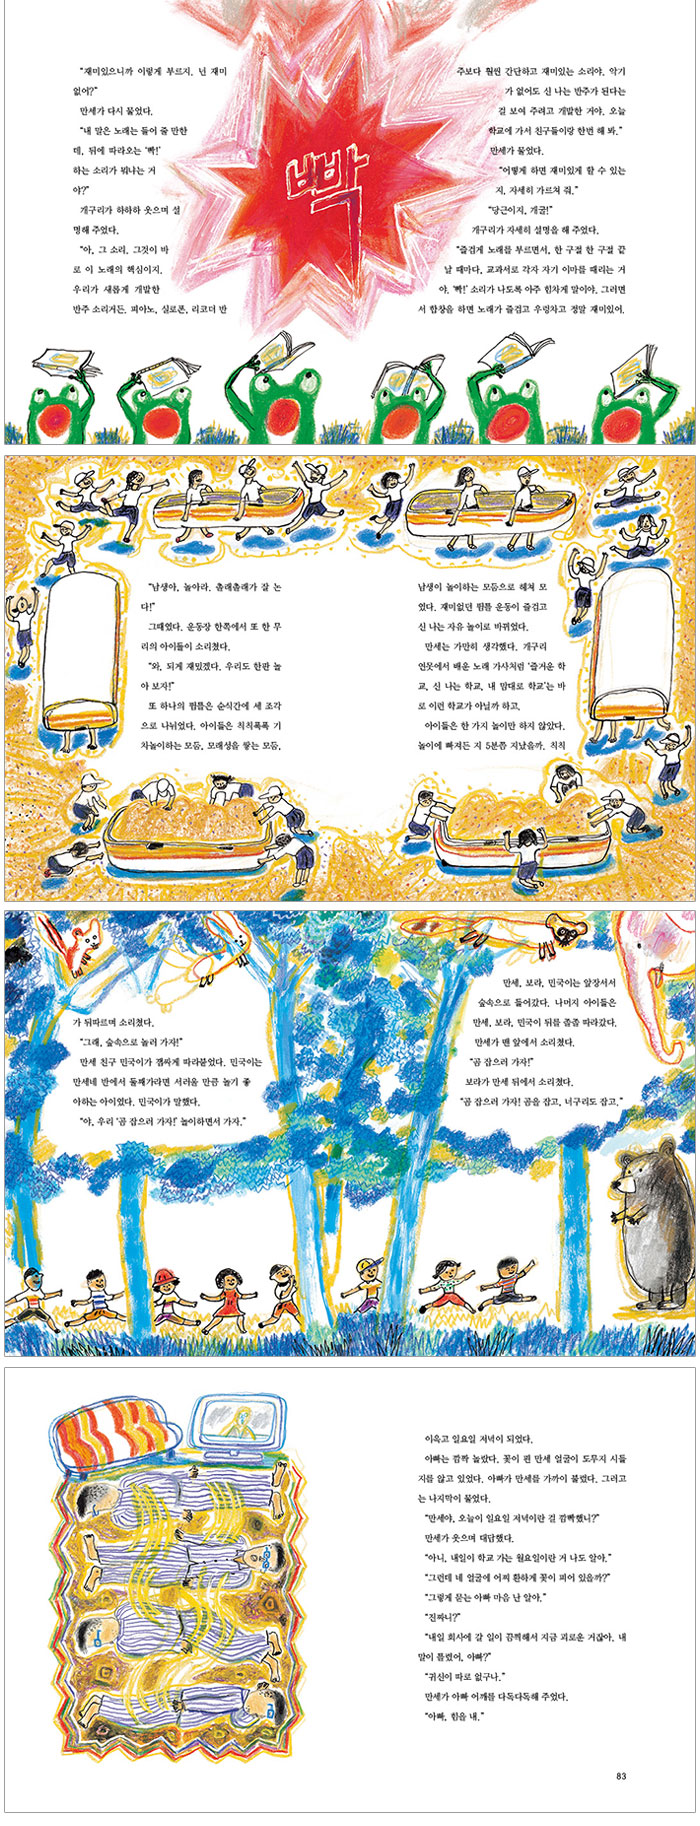 “재미있으니까 이렇게 부르지, 넌 재미
없어?”
만세가 다시 물었다.
“내 말은 노래는 들어 줄 만한
데, 뒤에 따라오는 ‘빡!’
하는 소리가 뭐냐는 거
야?”
개구리가 하하하 웃으며 설
명해 주었다.
“아, 그 소리, 그것이 바
로 이 노래의 핵심이지.
우리가 새롭게 개발한
반주 소리거든. 피아노, 실로폰, 리코더 반
빡
주보다 훨씬 간단하고 재미있는 소리야. 악기
가 없어도 신 나는 반주가 된다는
걸 보여 주려고 개발한 거야. 오늘
학교에 가서 친구들이랑 한번 해 봐.”
만세가 물었다.
“어떻게 하면 재미있게 할 수 있는
지, 자세히 가르쳐 줘.”
“당근이지, 개굴!”
개구리가 자세히 설명을 해 주었다.
“즐겁게 노래를 부르면서, 한 구절 한 구절 끝
날 때마다, 교과서로 각자 자기 이마를 때리는 거
야. ‘빡!’ 소리가 나도록 아주 힘차게 말이야. 그러면
서 합창을 하면 노래가 즐겁고 우렁차고 정말 재미있어.
“남생아, 놀아라. 촐래촐래가 잘 논
다!”
그때였다. 운동장 한쪽에서 또 한 무
리의 아이들이 소리쳤다.
“와, 되게 재밌겠다. 우리도 한판 놀
아 보자!”
또 하나의 뜀틀은 순식간에 세 조각
으로 나뉘었다. 아이들은 칙칙폭폭 기
차놀이하는 모둠, 모래성을 쌓는 모둠,
남생이 놀이하는 모둠으로 헤쳐 모
였다. 재미없던 뜀틀 운동이 즐겁고
신 나는 자유 놀이로 바뀌었다.
만세는 가만히 생각했다. 개구리
연못에서 배운 노래 가사처럼 ‘즐거운 학
교, 신 나는 학교, 내 맘대로 학교’는 바
로 이런 학교가 아닐까 하고.
아이들은 한 가지 놀이만 하지 않았다.
놀이에 빠져든 지 5분쯤 지났을까. 칙칙
가 뒤따르며 소리쳤다.
“그래, 숲속으로 놀러 가자!”
만세 친구 민국이가 잽싸게 따라붙었다. 민국이는
만세네 반에서 둘째가라면 서러울 만큼 놀기 좋
아하는 아이였다. 민국이가 말했다.
“야, 우리 ‘곰 잡으러 가자!’ 놀이하면서 가자.”
만세, 보라, 민국이는 앞장서서
숲속으로 들어갔다. 나머지 아이들은
만세, 보라, 민국이 뒤를 졸졸 따라갔다.
만세가 맨 앞에서 소리쳤다.
“곰 잡으러 가자!”
보라가 만세 뒤에서 소리쳤다.
“곰 잡으러 가자! 곰을 잡고, 너구리도 잡고.”
이윽고 일요일 저녁이 되었다.
아빠는 깜짝 놀랐다. 꽃이 핀 만세 얼굴이 도무지 시들
지를 않고 있었다. 아빠가 만세를 가까이 불렀다. 그러고
는 나지막이 물었다.
“만세야, 오늘이 일요일 저녁이란 걸 깜빡했니?”
만세가 웃으며 대답했다.
“아니, 내일이 학교 가는 월요일이란 거 나도 알아.”
“그런데 네 얼굴에 어찌 환하게 꽃이 피어 있을까?”
“그렇게 묻는 아빠 마음 난 알아.”
“진짜니?”
“내일 회사에 갈 일이 끔찍해서 지금 괴로운 거잖아. 내
말이 틀렸어, 아빠?”
“귀신이 따로 없구나.”
만세가 아빠 어깨를 다독다독해 주었다.
“아빠, 힘을 내.”
83